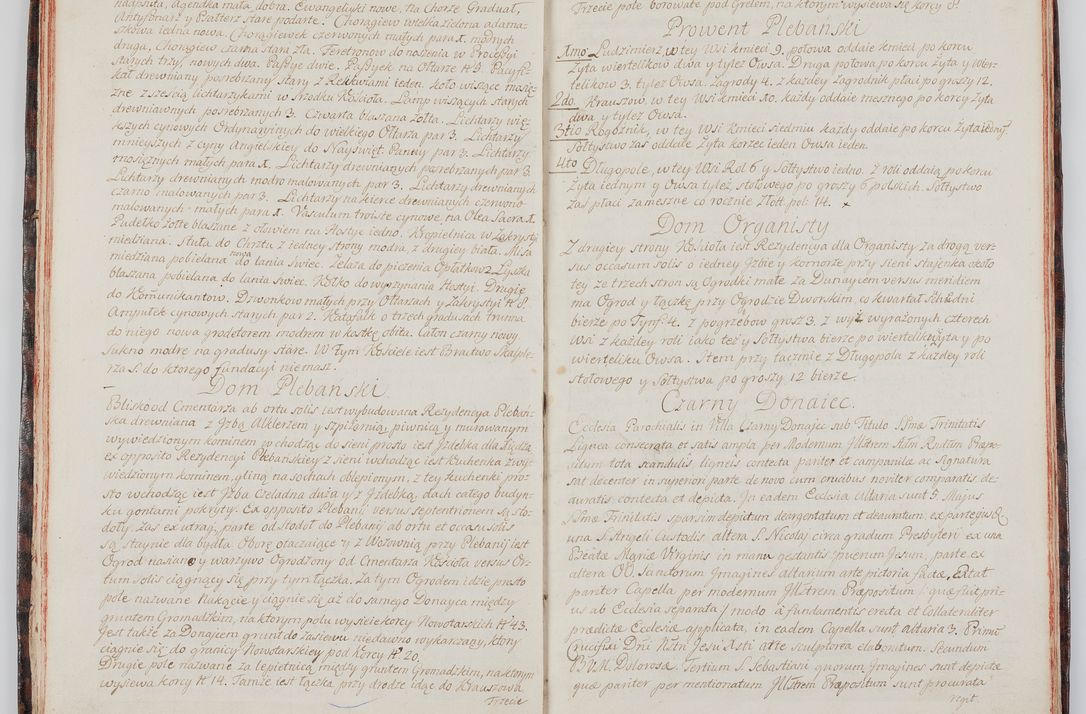 nadpsuta, Agendka mała, dobra. Ewangeliyki nowe, na Chorze Graduał,
Antyfonarz y Psałterz stare podarte. Chorągiew wielka zielona adama-
szkowa iedna nowa. Chorągiewek czerwonych małych para 1. modrych
druga. Chorągiew czarna stara zła. Feretronow do noszenia w Procesyi
starych trzy, nowych dwa. Passye dwie. Passyek na Ołtarze № 9. Pacyfi-
kał drewniany posrebrzany stary z Relikwiami ieden. Koło wiszące mosię-
zne z sześcią lichtarzykami w srzodku Kościoła. Lamp wiszących starych
drewnianych posrebrzanych 3. Czwarta blaszana żółta. Lichtarzy wię-
kszych cynowych Ordynaryinych do wielkiego Ołtarza par 3. Lichtarzy
mnieyszych z cyny Angielskiey do Nayświęt. Panny par 3. Lichtarzy
mosiężnych małych para 1. Lichtarzy drewnianych posrebrzanych par 3
Lichtarzy drewnianych modro malowanych par 3. Lichtarzy drewnianych
czarno malowanych par 3. Lichtarzy na kierce drewnianych czerwono
malowanych małych para 1. Vasculum troiste cynowe na Olea Sacra 1.
Pudełko żółte blaszane z ołowiem na Hostye iedno. Kropielnica w Zakrystyi
miedziana. Stuła do Chrztu z iedney strony modra, z drugiey biała. Misa
miedziana pobielana nowa do lania swiec. Żelaza do pieczenia Opłatkow 2 Łyszka
blaszana pobielana do lania swiec. Kółko do wyrzynania Hostyi. Drugie
do Komunikantow. Dzwonkow małych przy Ołtarzach y Zakrystyi № 8.
Ampułek cynowych starych par 2. Katafalk o trzech gradusach trunna
do niego nowa grodetorem modrem w kostkę obita. Całon czarny nowy
sukno modre na gradusy stare. W tym Kościele iest Bractwo Skaple-
rza S. do ktorego fundacyi nie masz.
Dom Plebański
Blisko od Cmentarza ab ortu solis iest wybudowana Rezydencya Plebań-
ska drewniana z Izbą Alkierzem y szpiżarnią, piwnicą y murowanym
wywiedzionym kominem, wchodząc do sieni prosto iest Izdebka dla Księdza
ex opposito Rezydencyi Plebańskiey z sieni wchodząc iest Kuchenka z wy-
wiedzionym kominem, gliną na sochach oblepionym, z tey kuchenki pro-
sto wchodząc iest Izba Czeladna duża y z Izdebką, dach całego budyn-
ku gontami pokryty. Ex opposito Plebanij versus septentrionem są sto-
doły, zaś ex utraq. parte od stodół do Plebanij ab ortu et occasu solis
są staynie dla bydła Oborę otaczaiące y z Wozownią przy Plebanij iest
Ogrod nasiany warzywo Ogrodzony od Cmentarza Kościoła versus Or-
tum solis ciągnący się przy tym łączka. Za tym Ogrodem idzie prosto
pole nazwane Nakącie y ciągnie się aż do samego Donayca między
gruntem Gromadzkim, na ktorym polu wysieie korcy Nowotarskich № 43.
Jest także za Donaycem grunt do zasiewu niedawno wykarczany, ktory
ciągnie się do granicy Nowotarskiey pod korcy № 20.
Drugie pole nazwane za lepietnicą między gruntem Gromadzkim, na ktorym
wysiewa korcy № 14. Tamże iest łączka przy drodze idąc do Krauszowa
Trzecie
Trzecie pole borowate pod Grelem, na ktorym wysiewa się korcy 8.
Prowent Plebański
1mo Ludzimierz, w tey Wsi kmieci 9. połowa oddaie kmieci po korcu
Żyta wiertelikow dwa y tyleż Owsa. Druga połowa po korcu żyta y Wier-
telikow 3. tyleż Owsa. Zagrody 4. z każdey Zagrodnik płaci po groszy 12.
2do. Krauszow, w tey Wsi kmieci 10. każdy oddaie mesznego po korcy Żyta
dwa y tyleż Owsa.
3tio Rogoźnik, w tey Wsi kmieci siedmiu każdy oddaie po korcu Żyta iedny,
Sołtystwo zaś oddaie Żyta korzec ieden Owsa ieden.
4to Długopole, w tey Wsi Rol 6 y Sołtystwo iedno. Z roli oddaią po korcu
Żyta iednym y Owsa tyleż stołowego po groszy 6 polskich. Sołtystwo
zaś płaci za meszne co rocznie złott. pol. 14.
Dom Organisty
Z drugiey strony Kościoła iest Rezydencya dla Organisty za drogą ver-
sus occasum solis o iedney Izbie y komorze przy sieni stajenka około
tey ze trzech stron są Ogrodki małe za Dunaycem versus meridiem
ma Ogrod y łączkę przy Ogrodzie Dworskim, co kwartał Sch.
bierze po Tynf. 4. z pogrzebow grosz 3. z wyż wyrażonych czterech
Wsi z każdey roli iako też y Sołtystwa bierze po wierteliku żyta y po
wierteliku Owsa. Item przy łacznie z Długopola z każdey roli
stołowego y Sołtystwa po groszy 12 bierze.
Czarny Donaiec.
Ecclesia Parochialis in Villa Czarny Donajec sub Titulo SSmæ Trinitatis
Lignea consecrata et satis ampla per Modernum Jllstrem Nttm Ruttm Præpo-
situm tota scandulis ligneis contecta pariter et campanile ac signatura
sat decenter in superiori parte de novo cum crucibus noviter comparatis de-
auratis contecta et depicta. In eadem Ecclesia Altaria sunt 5. Majus
SSmæ Trinitatis sparsim depictum deargentatum et deauratum: ex parte jus
una S. Angeli Custodis altera S. Nicolai circa gradum Presbyterii ex una
Beatæ Mariæ Virginis in manu gestantis puerum Jesum, parte ex
altera OO. Sanctorum Imagines altarium arte pictoria factæ. Extat
pariter Capella per modernum Jllstrem Præpositum /: quæ fuit pri-
us ab Ecclesia separata / modo à fundamentis erecta et Collateraliter
prædictæ Ecclesiæ applicata, in eadem Capella sunt altaria 3. Primũ
Crucifixi Dni Nstri Jesu Xsti arte sculptorea elaboratum. Secundum
B. V. M. Dolorosæ. Tertium S. Sebastiani quorum Imagines sunt depictæ
quæ pariter per mentionatum Jllstrem Præpositum sunt procurata